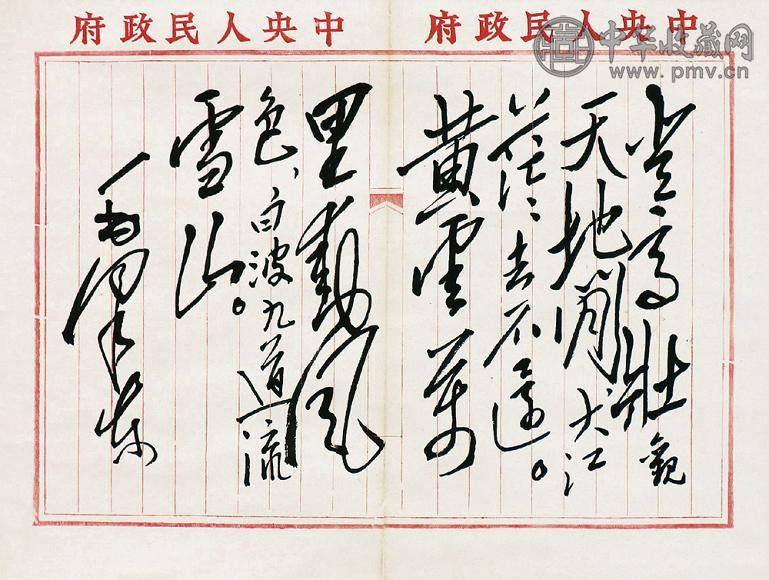 中央人民政府
中央人民政府
中华收藏网
www.pmv.cn
登高壯觀
天地間大江
茫茫去不還。
黃雲萬
里動風
色、白波九道流
雪山。
毛澤東